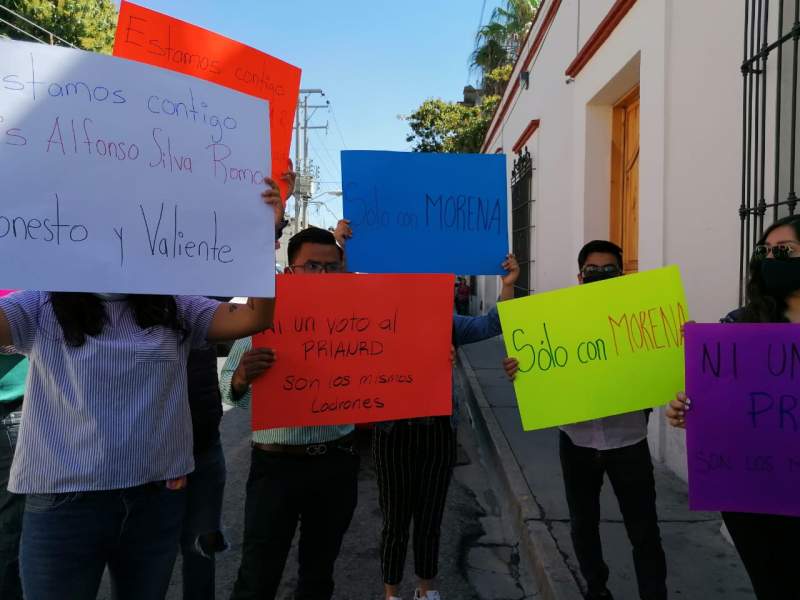 Estamos contigo
stamos contigo
is Alfonso Silva Romo
onesto y Valiente
Sólo con MORENA
Ni un voto al
PRIANRD
son los mismos
Ladrones
Sólo con MORENA
NI UN
PR
SON LOS